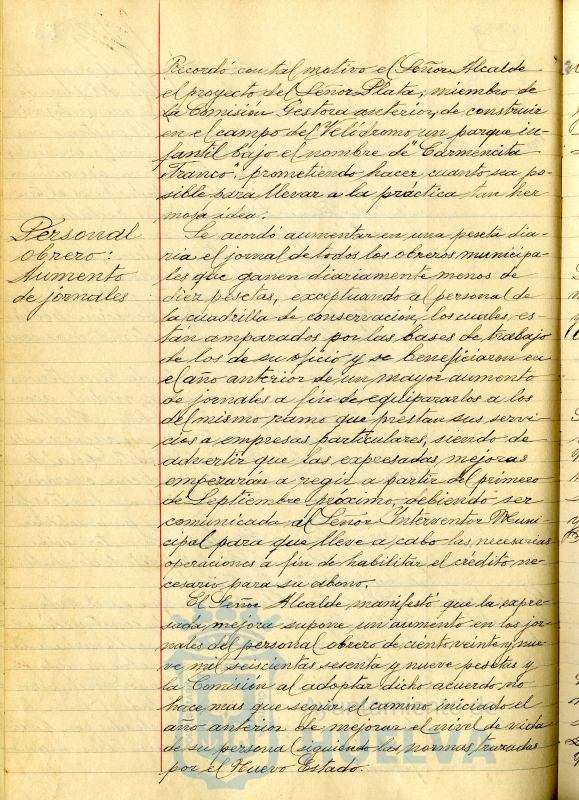 Recordó con tal motivo el Señor Alcalde
el proyecto del Señor Plata, miembro de
la Comisión Gestora anterior, de construir
en el campo del Velódromo un parque in-
fantil bajo el nombre de "Carmencita
Franco", prometiendo hacer cuanto sea po-
sible para llevar a la práctica tan her
mosa idea.
Personal
obrero:
Aumento
de jornales
Se acordó aumentar en una peseta dia-
ria el jornal de todos los obreros municipa-
les que ganen diariamente menos de
diez pesetas, exceptuando al personal de
la cuadrilla de conservación, los cuales, es-
tán amparados por las bases de trabajo
de los de su oficio y se beneficiaron en
el año anterior de un mayor aumento
de jornales a fin de equipararlos a los
del mismo ramo que prestan sus servi-
cios a empresas particulares, siendo de
advertir que las expresadas mejoras
empezarán a regir a partir del primero
de Septiembre próximo, debiendo ser
comunicada al Señor Interventor Muni-
cipal para que lleve a cabo las necesarias
operaciones a fin de habilitar el crédito ne-
cesario para su abono.
El Señor Alcalde manifestó que la expre-
sada mejora supone un aumento en los jor-
nales del personal obrero de ciento veinte y nue-
ve mil seiscientas sesenta y nueve pesetas y
la Comisión al adoptar dicho acuerdo, no
hace mas que seguir el camino iniciado el
año anterior de mejorar el nivel de vida
de su personal siguiendo las normas trazadas
por el Nuevo Estado.
HUELVA